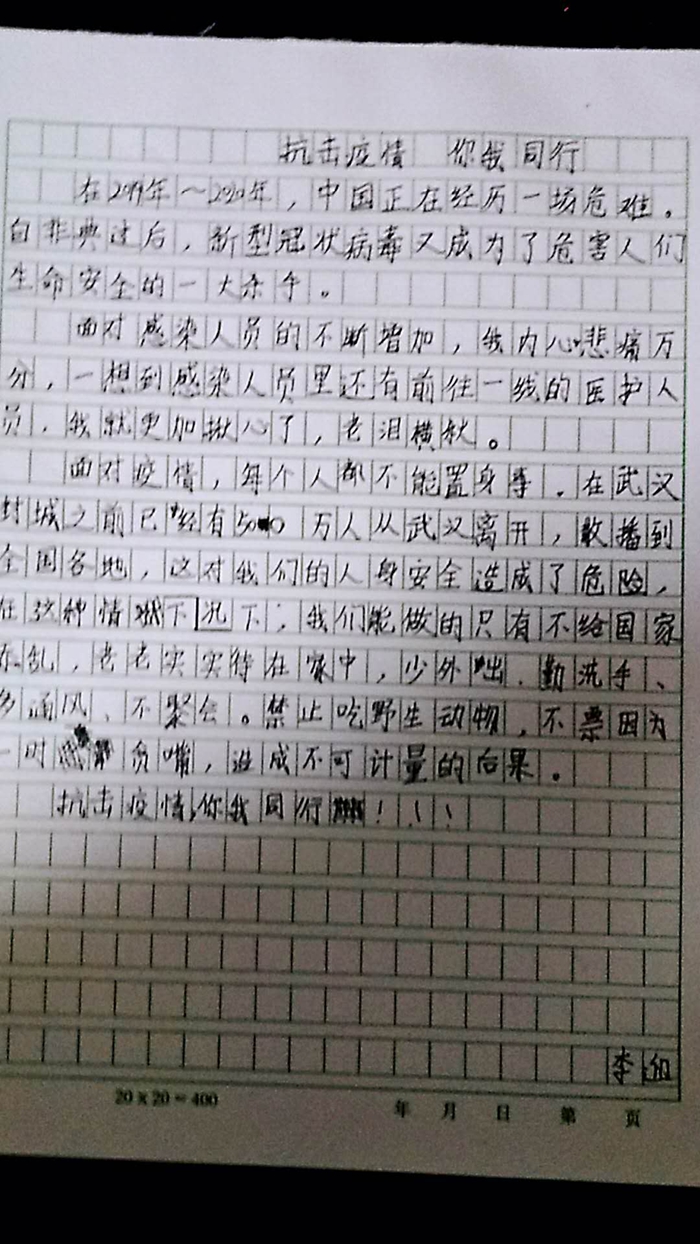 抗击疫情 你我同行
在2019年～2020年，中国正在经历一场危难。
自非典过后，新型冠状病毒又成为了危害人们
生命安全的一大杀手。
面对感染人员的不断增加，我内心悲痛万
分，一想到感染人员里还有前往一线的医护人
员，我就更加揪心了，老泪横秋。
面对疫情，每个人都不能置身事．在武汉
封城之前已经有500万人从武汉离开，散播到
全国各地，这对我们的人身安全造成了危险，
在这种情状下况下，我们能做的只有不给国家
添乱，老老实实待在家中，少外出、勤洗手、
多通风、不聚会。禁止吃野生动物，不要因为
一时贪嘴，造成不可计量的后果。
抗击疫情，你我同行！！！
李
20×20=400 年 月 日 第 页